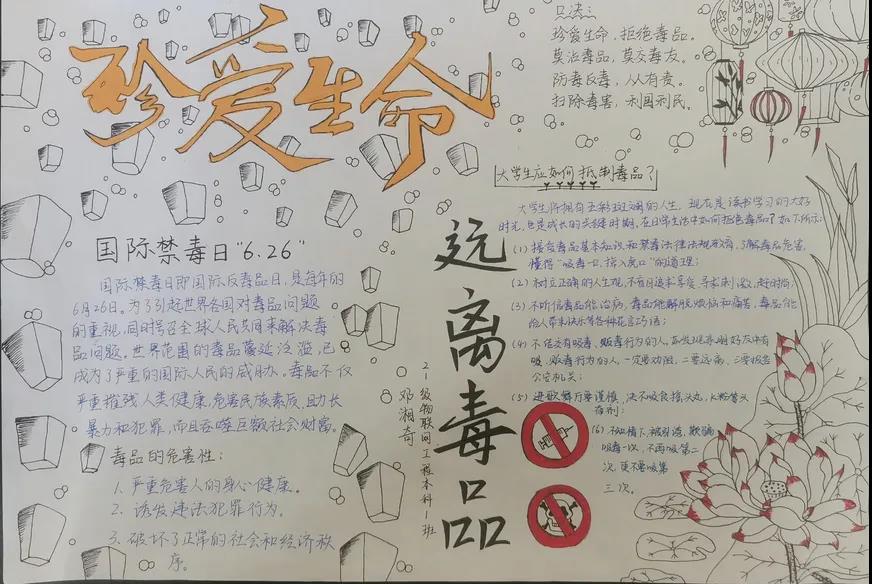 珍爱生命
口决:
珍爱生命,拒绝毒品。
莫沾毒品,莫交毒友。
防毒反毒,人人有责。
扫除毒害,利国利民。
国际禁毒日"6.26"
国际禁毒日即国际反毒品日,是每年的
6月26日。为了引起世界各国对毒品问题
的重视,同时号召全球人民共同来解决毒
品问题。世界范围的毒品蔓延泛滥,已
成为了严重的国际人民的威胁。毒品不仅
严重摧残人类健康,危害民族素质,助长
暴力和犯罪,而且吞噬巨额社会财富。
毒品的危害性:
1. 严重危害人的身心健康。
2. 诱发违法犯罪行为。
3. 破坏了正常的社会和经济秩
序。
远离毒品
21级物联网工程本科1班
邓湘奇
大学生应如何抵制毒品?
大学生你拥有五彩斑斓的人生,现在是读书学习的大好
时光,也是成长的关键时期。在日常生活中如何拒绝毒品?如下所示:
(1) 接受毒品基本知识和禁毒法律法规教育,了解毒品危害,
懂得"吸毒一口,掉入虎口"的道理;
(2) 树立正确的人生观,不盲目追求享受,寻求刺激,赶时尚。
(3) 不听信毒品能治病,毒品能解脱烦恼和痛苦,毒品能
给人带来快乐等各种花言巧语;
(4) 不结交有吸毒、贩毒行为的人。如发现亲朋好友中有
吸、贩毒行为的人,一定要劝阻,二要远离,三要报告
公安机关;
(5) 进歌舞厅要谨慎,决不吸食摇头丸、K粉等
(6) 不知情下,被引诱,欺骗
吸毒一次,不再吸第二
次,更不要吸第
三次。